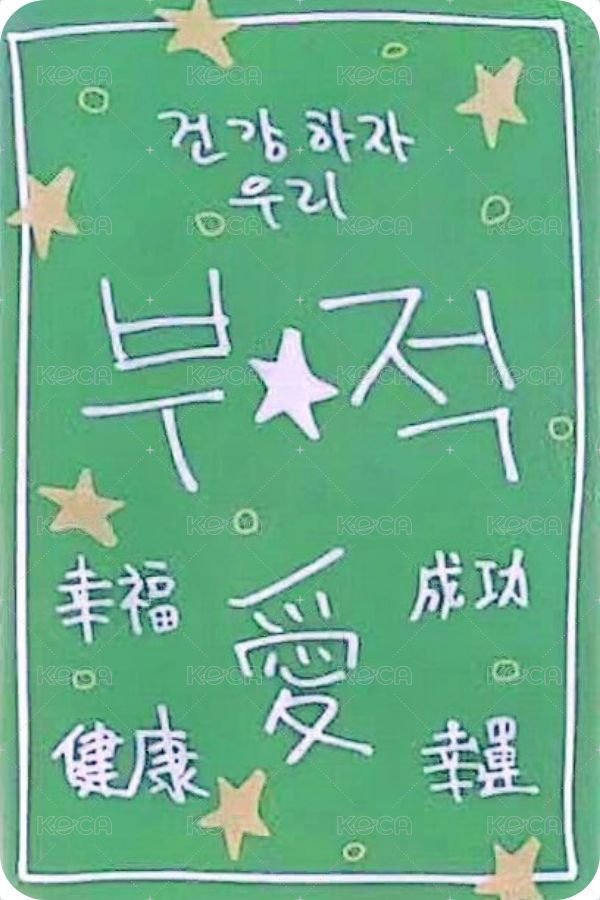 건강하자
우리
부★적
幸福
愛
成功
健康
幸運